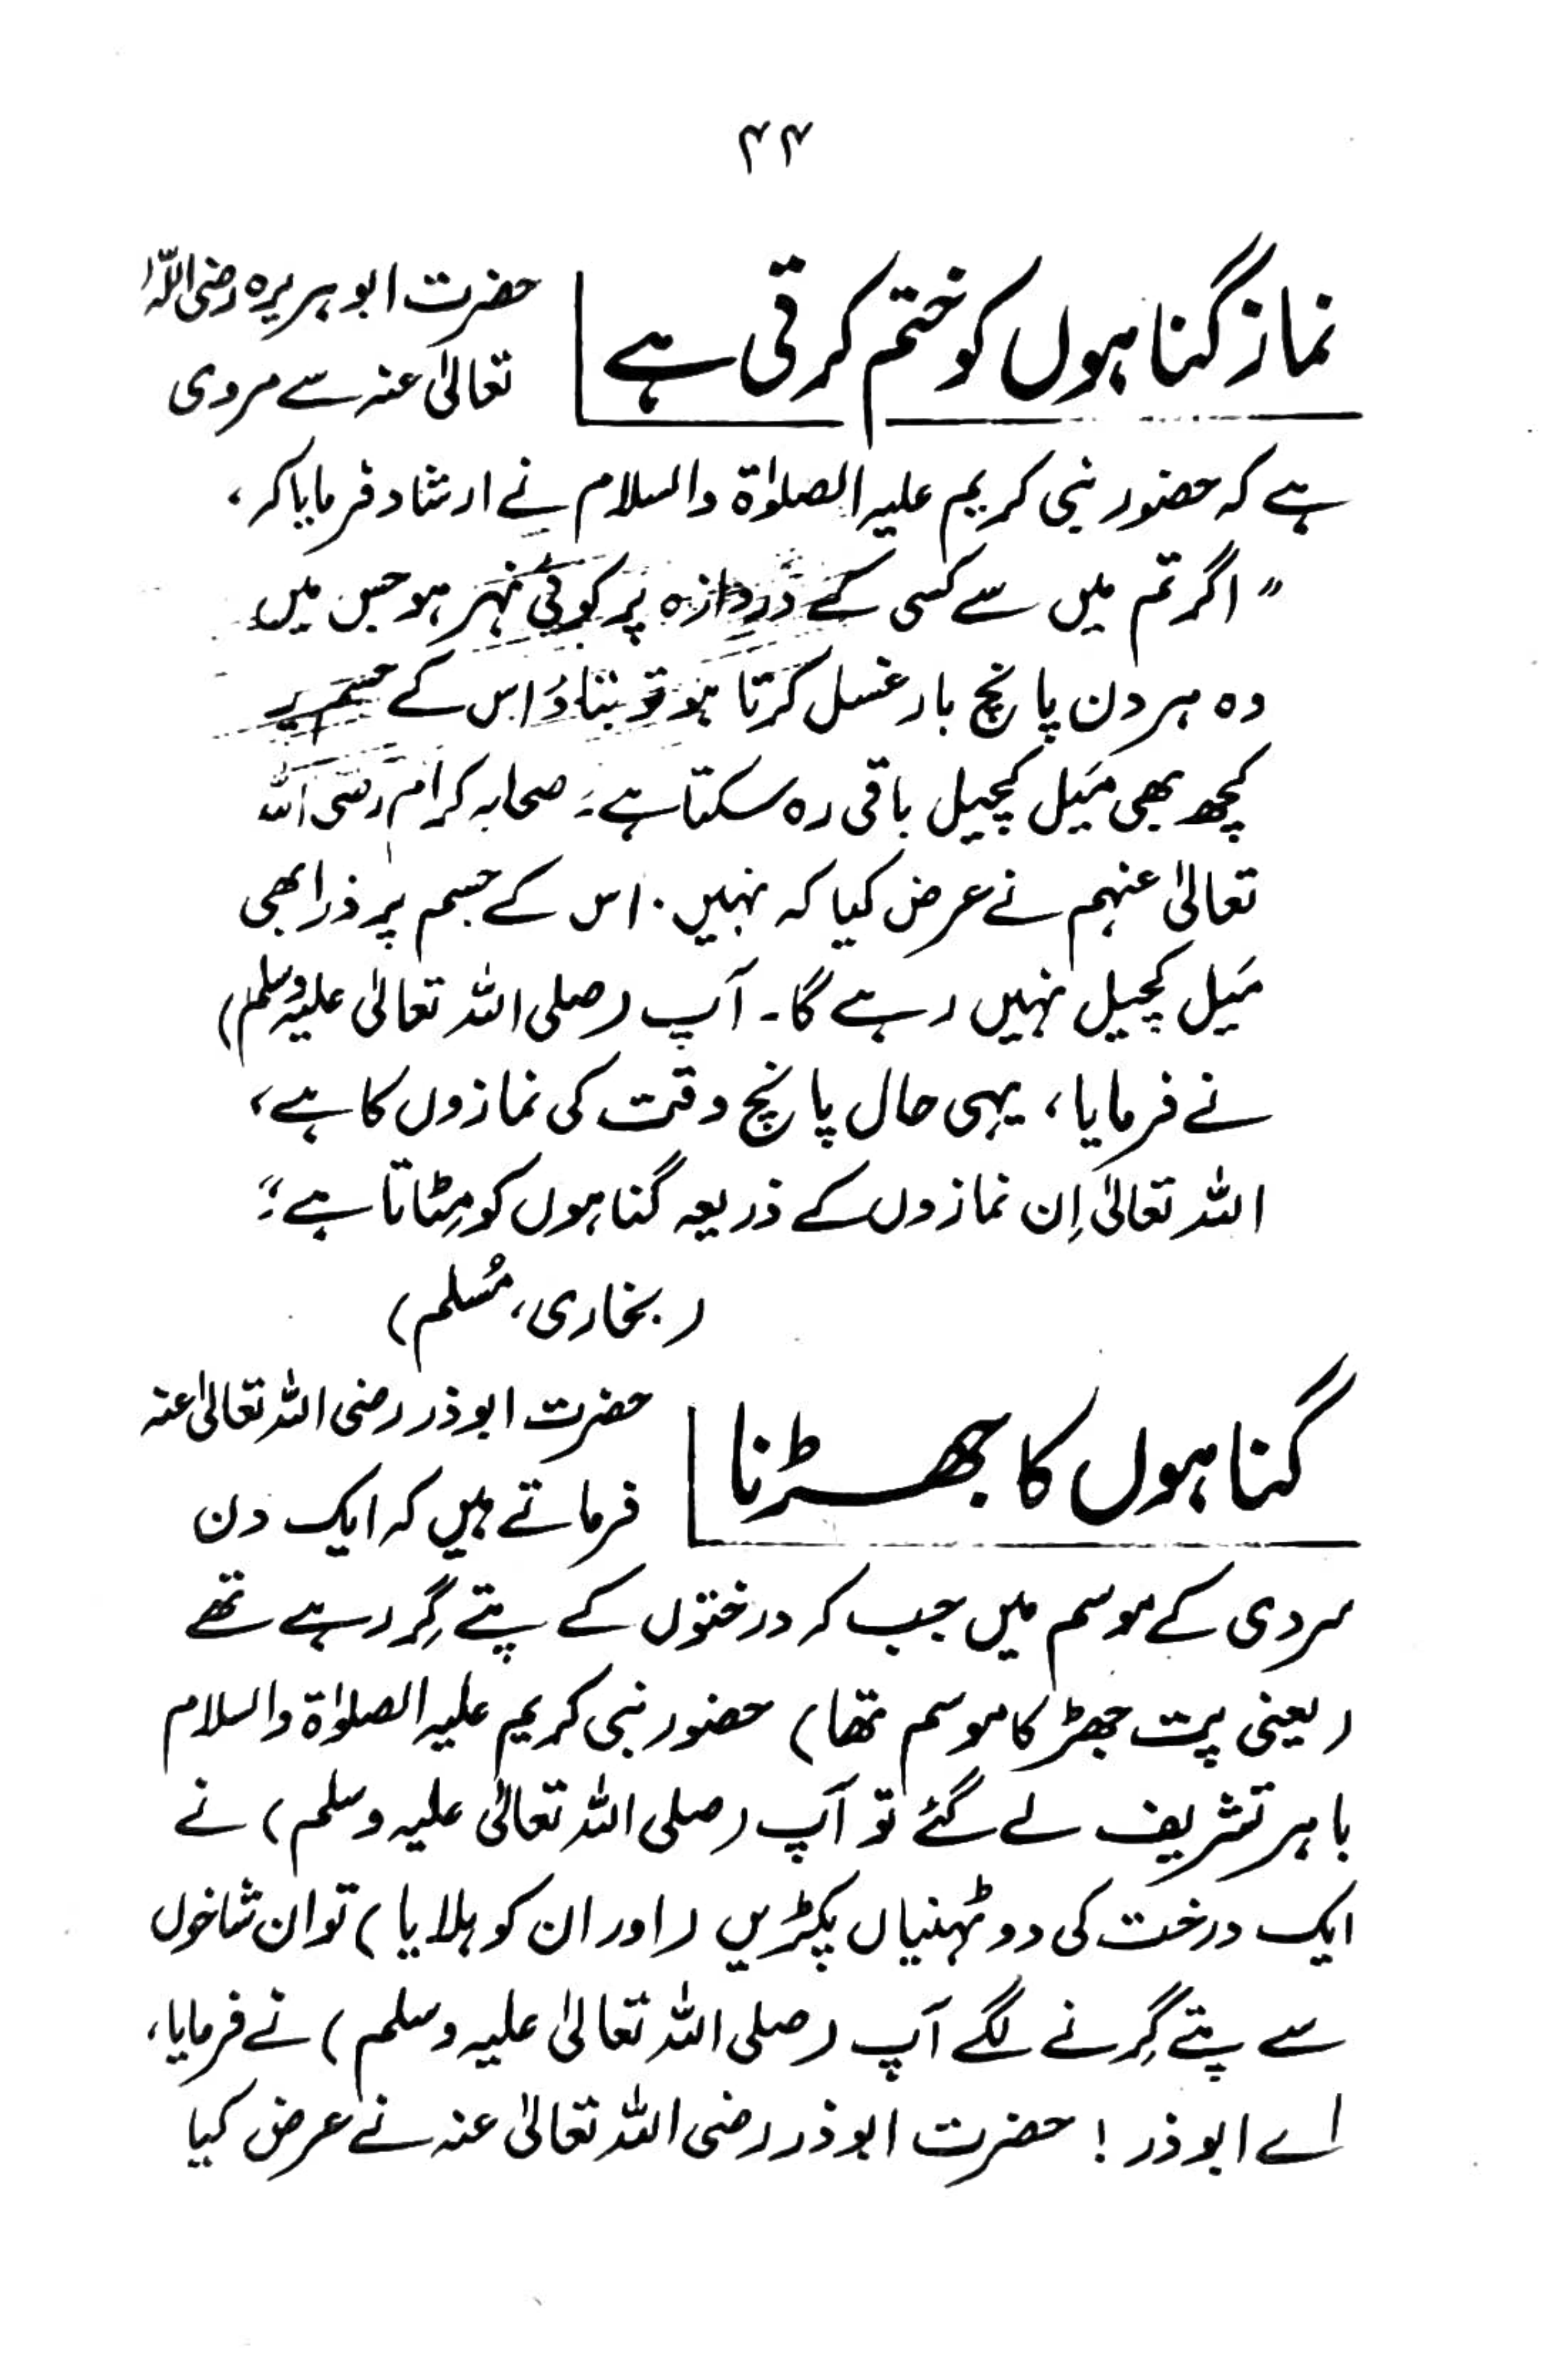 ۴۴
نماز گناہوں کو ختم کرتی ہے
حضرت ابوہریرہ رضی اللہ
تعالیٰ عنہ سے مروی
ہے کہ حضور نبی کریم علیہ الصلوٰۃ والسلام نے ارشاد فرمایا کہ،
"اگر تم میں سے کسی کے دروازہ پر کوئی نہر ہو جس میں
وہ ہر دن پانچ بار غسل کرتا ہو تو بتاؤ اس کے جسم پر
کچھ بھی مَیل کچیل باقی رہ سکتا ہے۔ صحابہ کرام رضی اللہ
تعالیٰ عنہم نے عرض کیا کہ نہیں۔ اس کے جسم پر ذرا بھی
مَیل کچیل نہیں رہے گا۔ آپ (صلی اللہ تعالیٰ علیہ وسلم)
نے فرمایا، یہی حال پانچ وقت کی نمازوں کا ہے،
اللہ تعالیٰ اِن نمازوں کے ذریعہ گناہوں کو مِٹاتا ہے۔"
(بخاری، مُسلم)
گناہوں کا جھڑنا
حضرت ابوذر رضی اللہ تعالیٰ عنہ
فرماتے ہیں کہ ایک دن
سردی کے موسم میں جب کہ درختوں کے پتے گِر رہے تھے
(یعنی پت جھڑ کا موسم تھا) حضور نبی کریم علیہ الصلوٰۃ والسلام
باہر تشریف لے گئے تو آپ (صلی اللہ تعالیٰ علیہ وسلم) نے
ایک درخت کی دو ٹہنیاں پکڑیں (اور ان کو ہلایا) تو ان شاخوں
سے پتے گِرنے لگے آپ (صلی اللہ تعالیٰ علیہ وسلم) نے فرمایا،
اے ابوذر! حضرت ابوذر رضی اللہ تعالیٰ عنہ نے عرض کیا